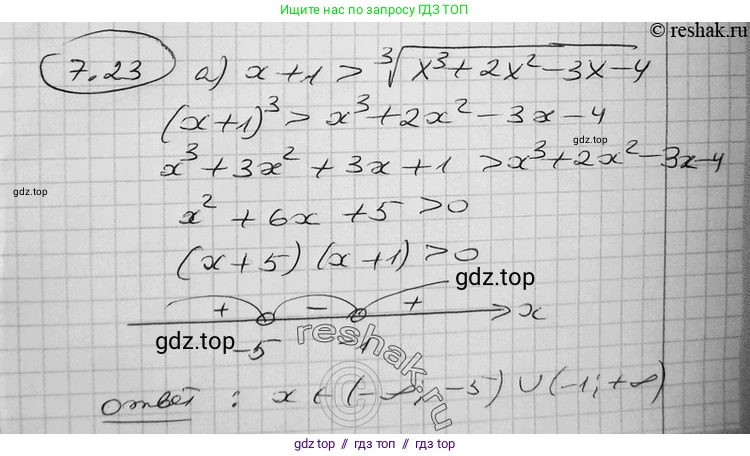 Ищите нас по запросу ГДЗ ТОП
© reshak.ru
7.23 а) x+1 > ∛(x³+2x²-3x-4)
(x+1)³ > x³+2x²-3x-4
gdz.top
x³+3x²+3x+1 > x³+2x²-3x-4
gdz.top
x²+6x+5>0
(x+5)(x+1)>0
gdz.top
+ - + x
gdz.top
-5 -1
reshak.ru
©
ответ: x ∈ (-∞; -5) ∪ (-1; +∞)
gdz.top // gdz.top // gdz.top